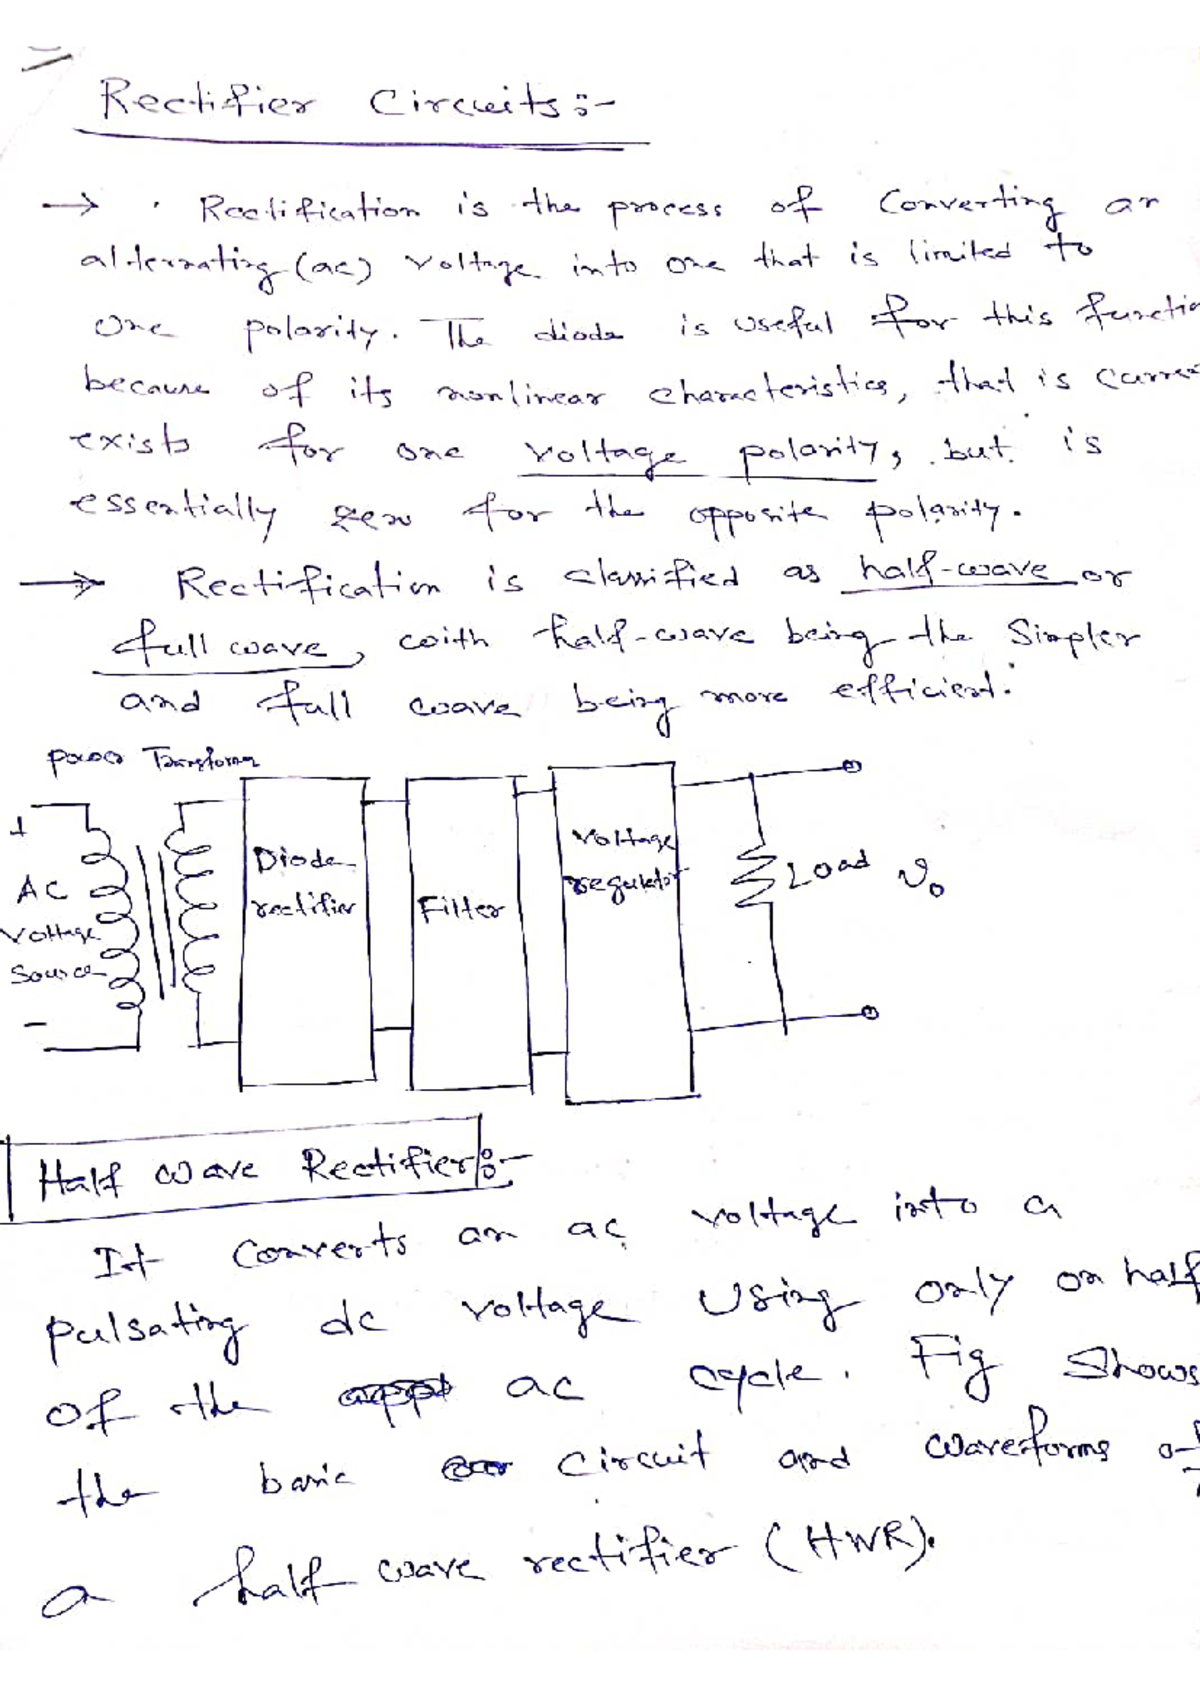 Rectifier Circuits :-
→ . Rectification is the process of Converting an
alternating (ac) voltage into one that is limited to
one polarity. The diode is useful for this functio
because of its nonlinear characteristics, that is curre
exists for one voltage polarity, but is
essentially zero for the opposite polarity.
→ Rectification is classified as half-wave or
full wave, with half-wave being the Simpler
and full wave being more efficient.
Power Transformer
+
AC
Voltage
Source
-
Diode
rectifier
Filter
Voltage
regulator
Load
v₀
Half wave Rectifier :-
It Converts an ac voltage into a
pulsating dc voltage Using only on half
of the ac cycle. Fig Shows
the basic Circuit and waveforms of
a half wave rectifier (HWR).